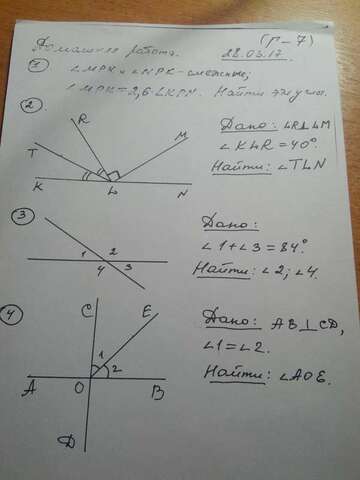 (Г-7)
Домашняя работа. 28.03.17.
1 ∠MPK и ∠NPK - смежные;
∠MPK = 2,6 ∠KPN. Найти эти углы.
2
R
M
T
K L N
Дано: LR⊥LM
∠KLR = 40°.
Найти: ∠TLN
3
1 2
4 3
Дано:
∠1+∠3 = 84°.
Найти: ∠2; ∠4.
4
C E
1
2
A O B
D
Дано: AB⊥CD,
∠1 = ∠2.
Найти: ∠AOE.